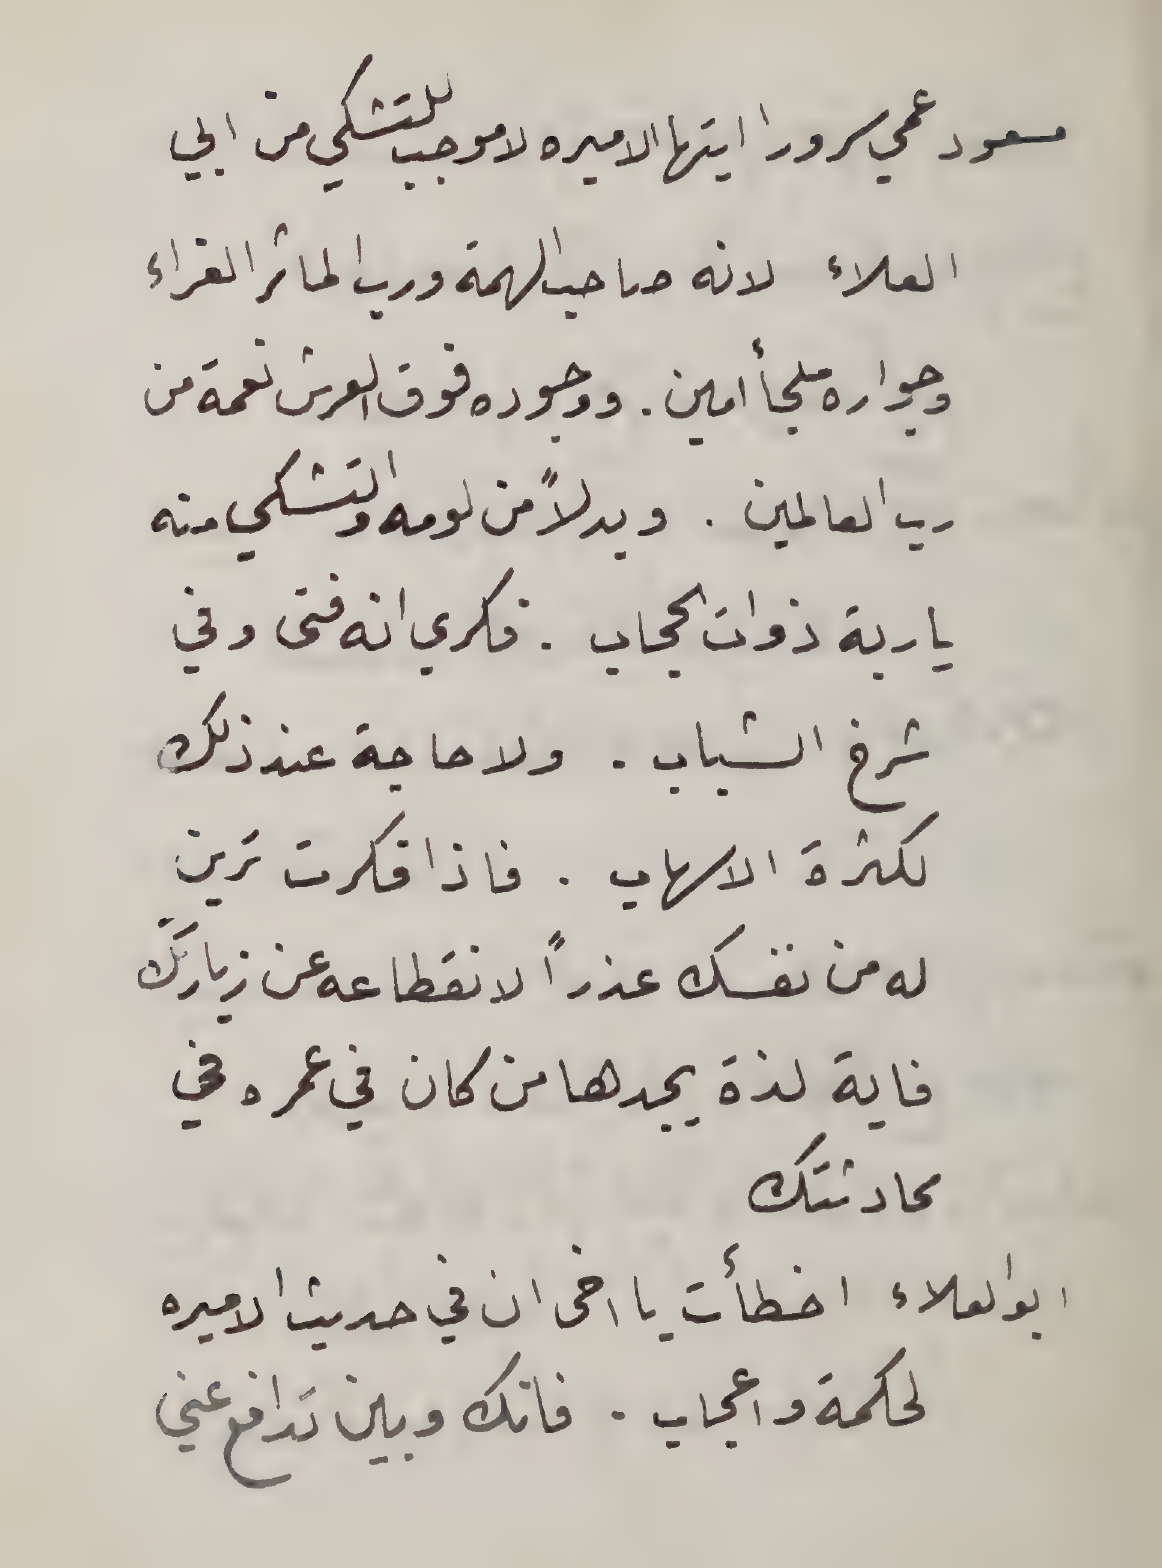 مسعود عمي سرورا ايتها الاميره لا موجب للتشكي من ابي
العلاء لانه صاحب الهمة ورب الماثر الغراء
وجواره ملجأ امين. ووجوده فوق العرش نعمة من
رب العالمين. وبدلاً من لومه والتشكي منه
يا ربة ذوات الحجاب. فكري انه فتى وفي
شرخ الشباب. ولا حاجة عند ذلك
لكثرة الاسهاب. فاذا فكرت ترين
له من نفسك عذراً لانقطاعه عن زيارتك
فاية لذة يجدها من كان في عمره في
محادثتك
ابو العلاء اخطأت يا اخى ان في حديث الاميره
لحكمة واعجاب. فانك وبين تدافع عني